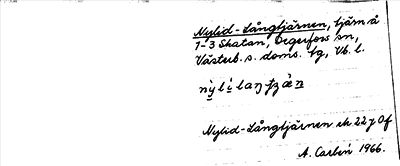 Nylid-Långtjärnen, tjärn å
1-3 Skatan, Degerfors sn,
Västerb. s. doms. tg, Vb. l.
Nylid-Långtjärnen ek 22 7 Of
A. Carlén 1966.